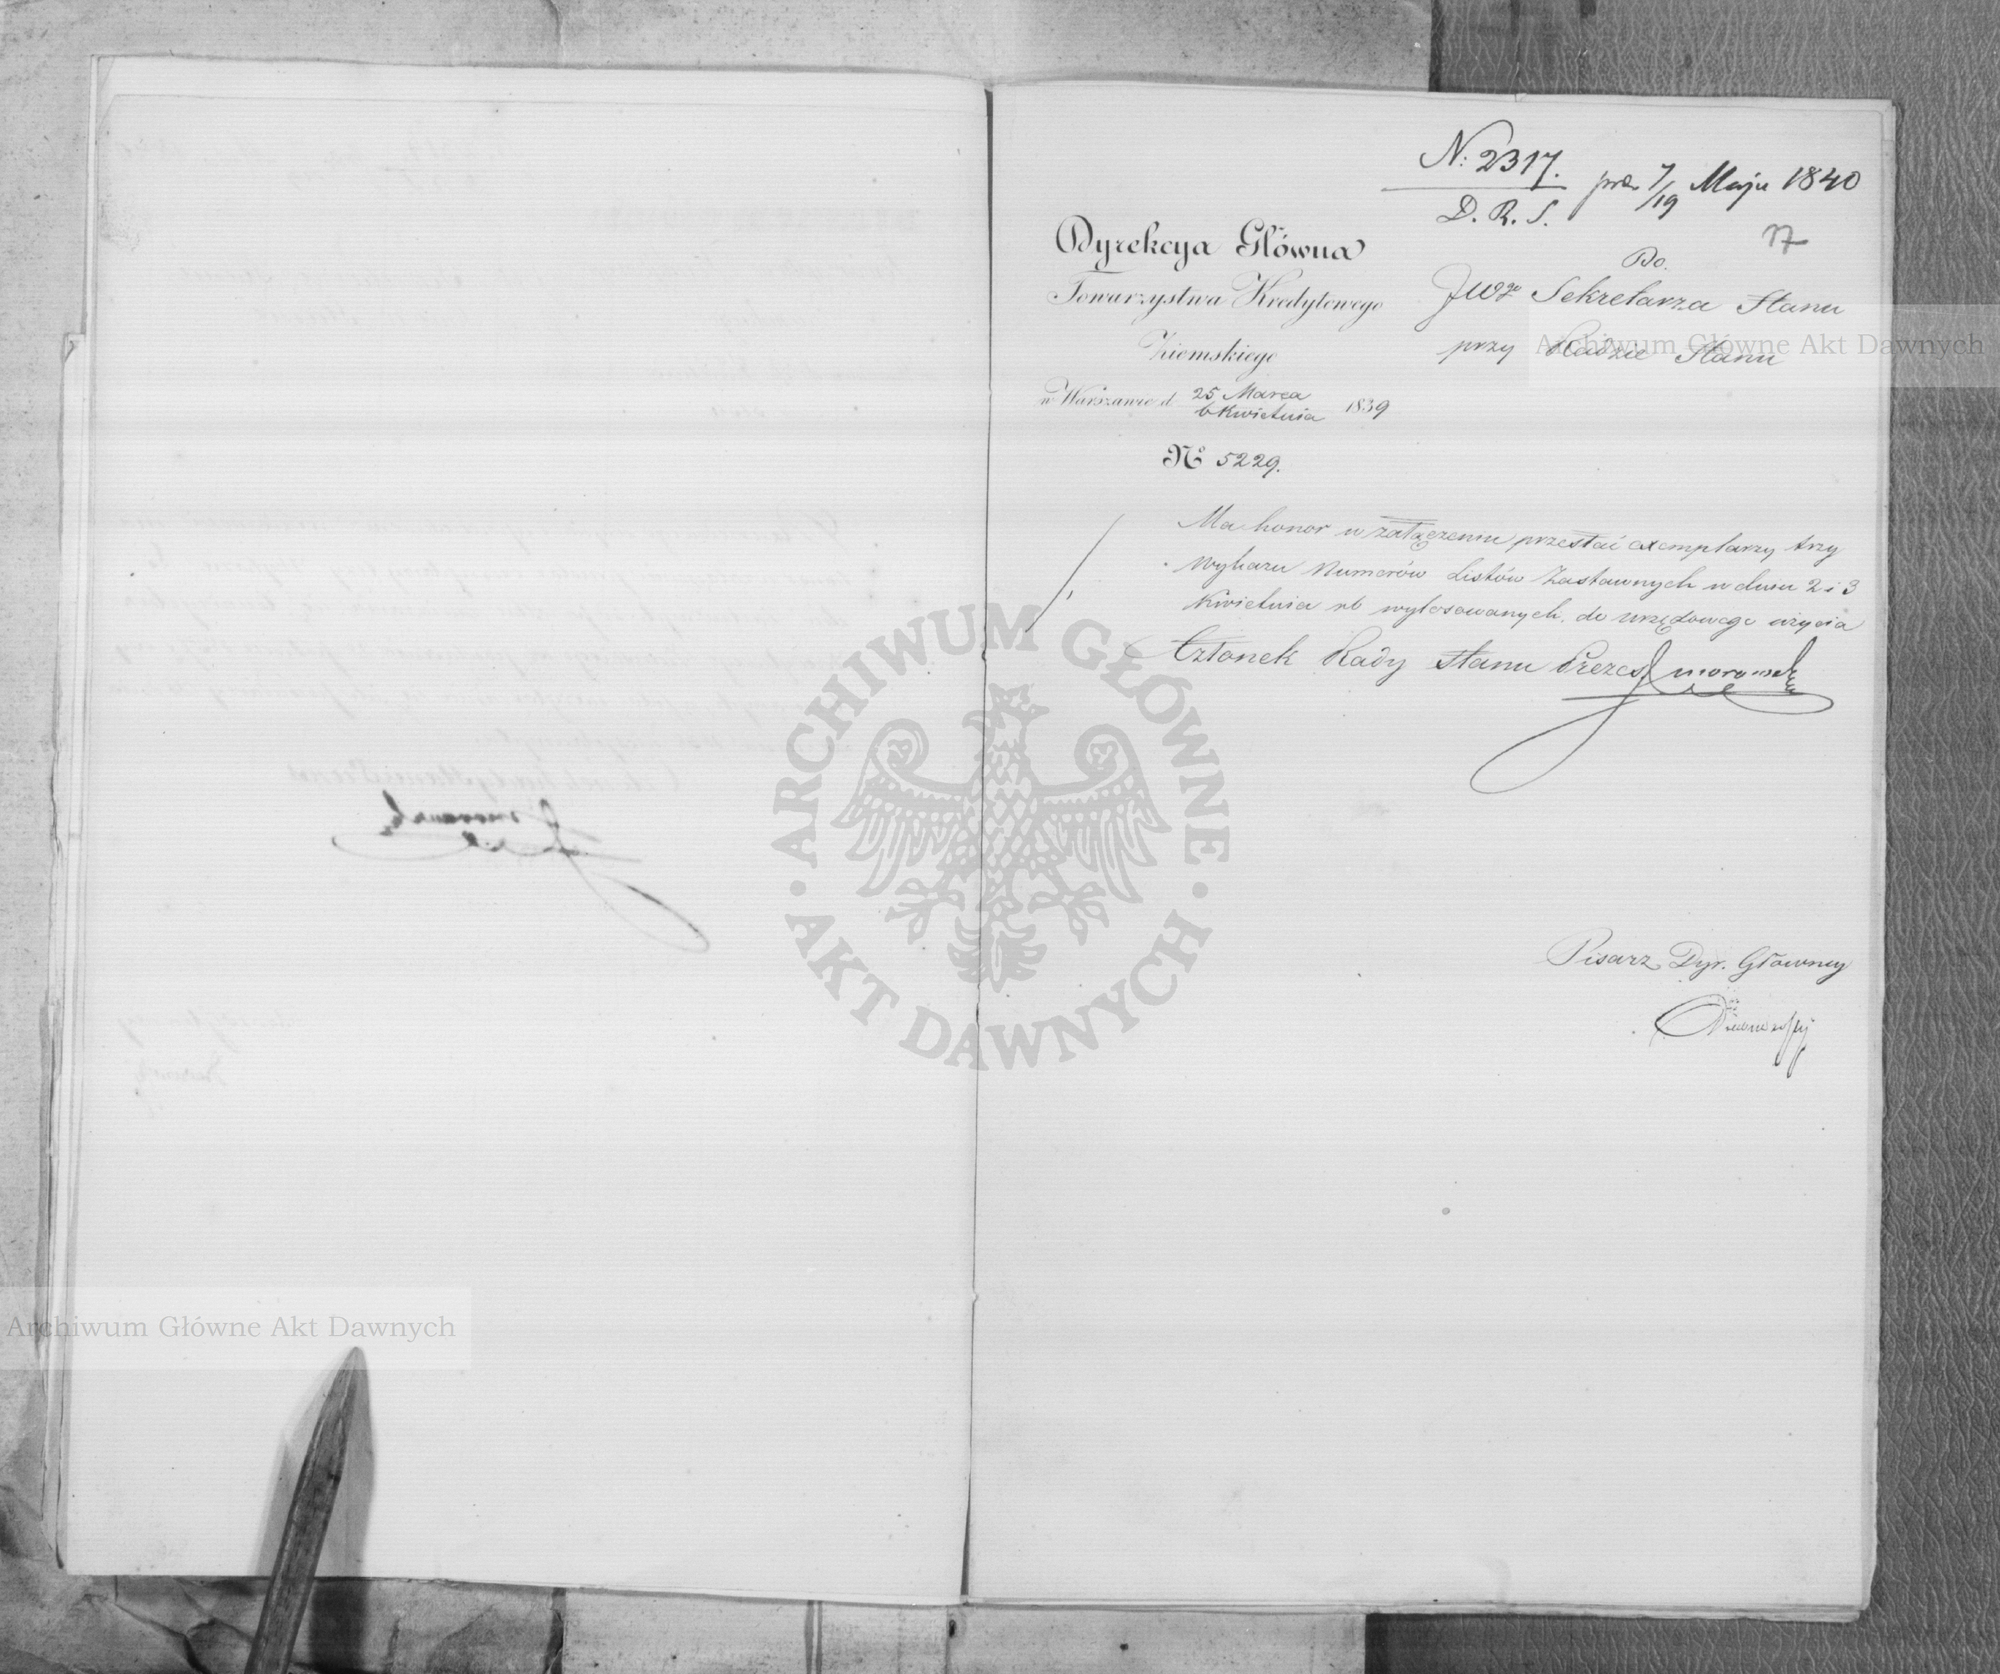 N: 2317.
D. R. S.
prae 7/19 Maju 1840
17
Dyrekcya Główna
Towarzystwa Kredytowego
Ziemskiego
w Warszawie d. 25 Marca
6 Kwietnia 1839
No 5229.
Do
JWgo Sekretarza Stanu
przy Radzie Stanu
Ma honor w załączeniu przesłać exemplarzy trzy
Wykazu Numerów Listów Zastawnych w dniu 2 i 3
Kwietnia rb wylosowanych, do urzędowego użycia
Członek Rady Stanu Prezes Morawski
Pisarz Dyr. Głowney
ARCHIWUM GŁÓWNE
AKT DAWNYCH
Archiwum Główne Akt Dawnych
Archiwum Główne Akt Dawnych